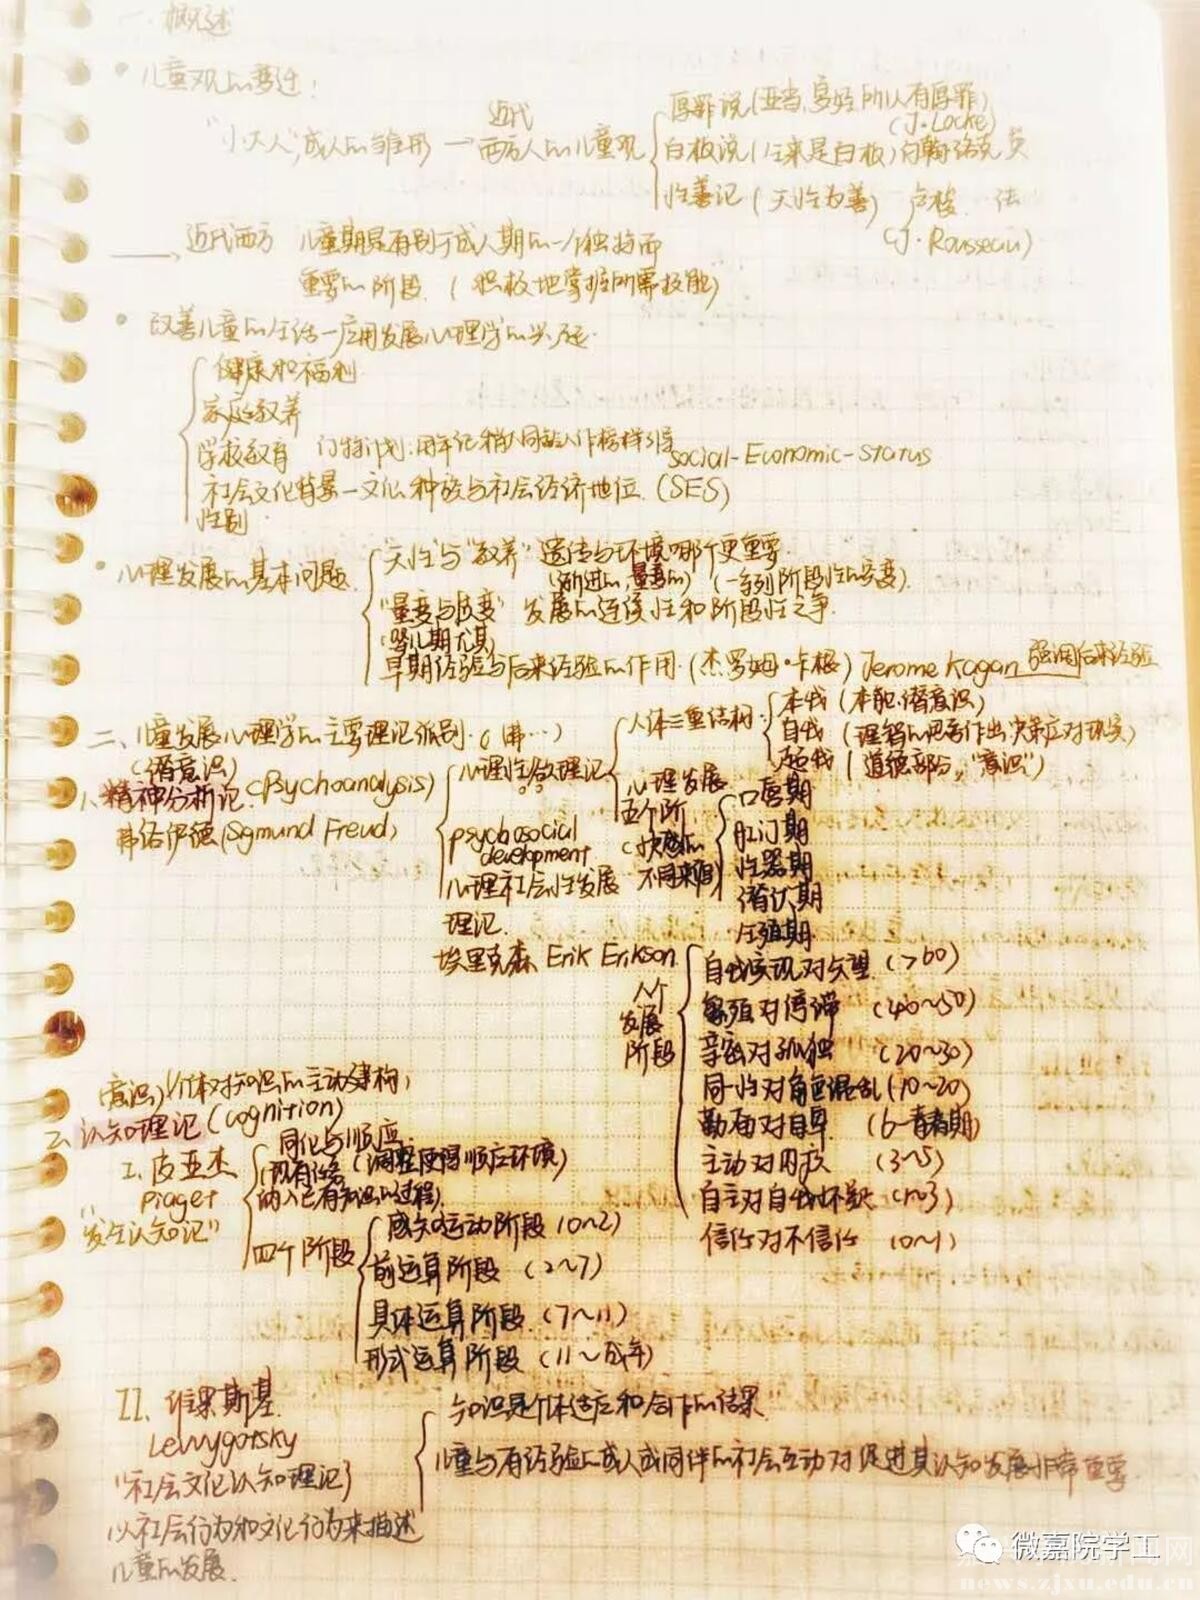 一、概述
儿童观的变迁:
"小大人",成人的雏形 → 近代西方人的儿童观
原罪说(亚当,夏娃 所人有原罪)
(J·Locke)
白板说(生来是白板)约翰·洛克 英
性善论(天性为善) 卢梭 法
(J·Rousseau)
近代西方 儿童期是有别于成人期的一个独特而
重要的阶段.(积极地掌握所需技能)
改善儿童的生活—应用发展心理学的兴起.
健康和福利
家庭教养
学校教育
social-Economic-status
社会文化背景—文化、种族与社会经济地位.(SES)
性别
心理发展的基本问题.
"天性"与"教养" 遗传与环境哪个更重要.
(渐进的,量变的) (一系列阶段性的突变).
"量变与质变" 发展的连续性和阶段性之争.
(婴儿期尤其)
早期经验与后来经验的作用.(杰罗姆·卡根) Jerome Kagan 强调后来经验
二、儿童发展心理学的主要理论派别.(弗…)
(潜意识)
1、精神分析论(Psychoanalysis)
弗洛伊德(Sgmund Freud)
心理性欲理论
人体三重结构:
本我(本能.潜意识)
自我(理智的思考作出决策应对现实)
超我(道德部分,"意识")
心理发展
五个阶
(快感的
不同来源)
口唇期
肛门期
性器期
潜伏期
生殖期
psychosocial
development
心理社会性发展
理论.
埃里克森 Erik Erikson
八个
发展
阶段
自我实现对失望(>60)
繁殖对停滞 (40~50)
亲密对孤独 (20~30)
同一性对角色混乱(10~20)
勤奋对自卑 (6-青春期)
主动对内疚 (3~5)
自主对自我怀疑(1~3)
信任对不信任 (0~1)
(意识)个体对知识的主动建构,
2、认知理论(cognition)
I、皮亚杰
Piaget
"发生认知论"
同化与顺应.
(调整使得顺应环境)
纳入已有知识的过程)
四个阶段
感知运动阶段(0~2)
前运算阶段 (2~7)
具体运算阶段.(7~11)
形式运算阶段 (11~成年)
II、维果斯基.
Lewygotsky
(社会文化认知理论)
以社会行为和文化行为来描述
儿童的发展.
知识是个体适应和合作的结果
儿童与有经验的成人或同伴的社会互动对促进其认知发展非常重要.
微嘉院学工
news.zjxu.edu.cn